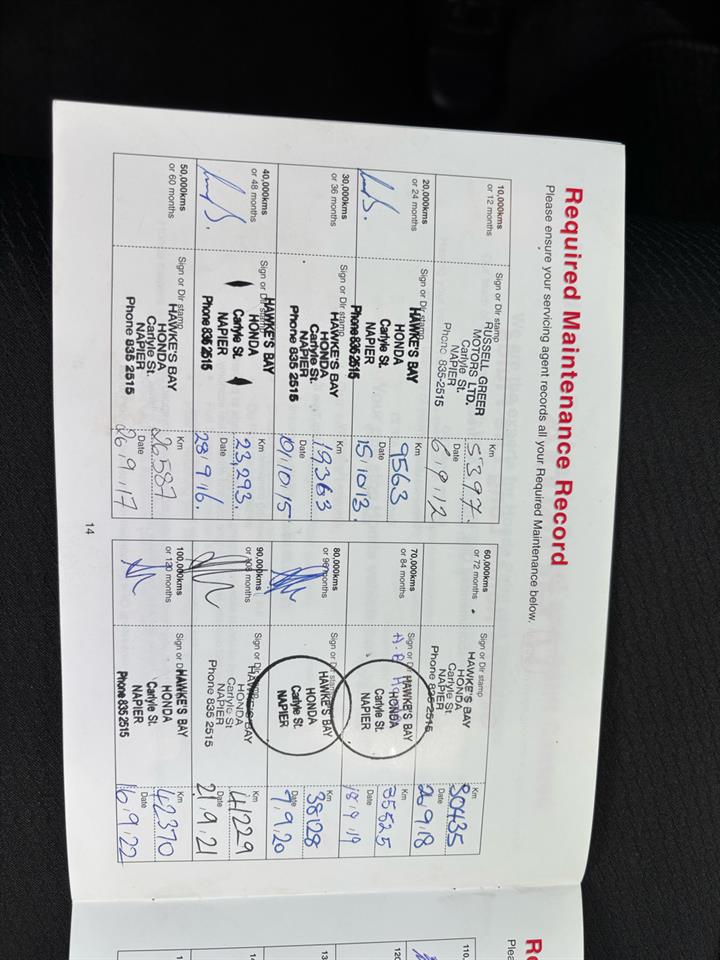 Required Maintenance Record
Please ensure your servicing agent records all your Required Maintenance below.
10,000kms
or 12 months
Sign or Dlr stamp
RUSSELL GREER
MOTORS LTD.
Carlyle St.
NAPIER
Phone 835-2515
Km
5397
Date
6.9.12
20,000kms
or 24 months
Sign or Dlr stamp
HAWKE'S BAY
HONDA
Carlyle St.
NAPIER
Phone 835 2515
Km
9563
Date
15/10/13.
30,000kms
or 36 months
Sign or Dlr stamp
HAWKE'S BAY
HONDA
Carlyle St.
NAPIER
Phone 835 2515
Km
19363
Date
01/10/15
40,000kms
or 48 months
Sign or Dlr stamp
HAWKE'S BAY
HONDA
Carlyle St.
NAPIER
Phone 835 2515
Km
23,293.
Date
28.9.16.
50,000kms
or 60 months
Sign or Dlr stamp
HAWKE'S BAY
HONDA
Carlyle St.
NAPIER
Phone 835 2515
Km
26,587
Date
26.9.17
60,000kms
or 72 months
Sign or Dlr stamp
HAWKE'S BAY
HONDA
Carlyle St.
NAPIER
Phone 835 2515
Km
30435
Date
26.9.18
70,000kms
or 84 months
Sign or Dlr stamp
HAWKE'S BAY
HONDA
Carlyle St.
NAPIER
Km
35525
Date
18.9.19
80,000kms
or 96 months
Sign or Dlr stamp
HAWKE'S BAY
HONDA
Carlyle St.
NAPIER
Km
38128
Date
7.9.20
90,000kms
or 108 months
Sign or Dlr stamp
HAWKE'S BAY
HONDA
Carlyle St
NAPIER
Phone 835 2515
Km
41229
Date
21.9.21
100,000kms
or 120 months
Sign or Dlr stamp
HAWKE'S BAY
HONDA
Carlyle St.
NAPIER
Phone 835 2515
Km
42370
Date
16.9.22
14